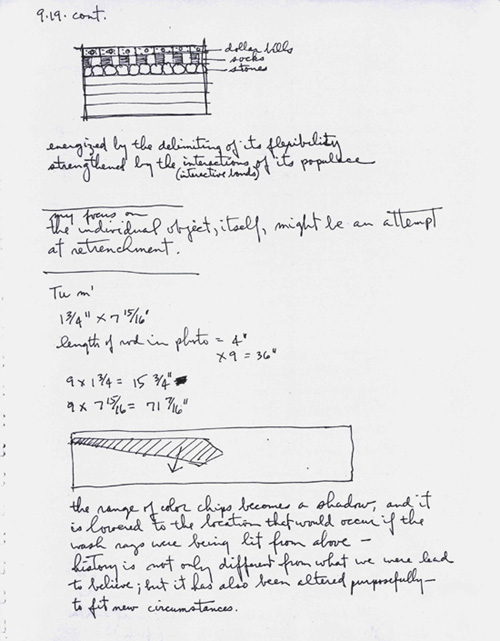 9.19. cont.
dollar bills
socks
stones
energized by the delimiting of its flexibility
strengthened by the interactions of its populace
(interactive bonds)
my focus on
the individual object, itself, might be an attempt
at retrenchment.
Tu m'
1 3/4" x 7 15/16"
length of rod in photo = 4"
x 9 = 36"
9 x 1 3/4 = 15 3/4"
9 x 7 15/16 = 71 7/16"
the range of color chips becomes a shadow, and it
is lowered to the location that would occur if the
wash rays were being lit from above –
history is not only different from what we were lead
to believe; but it has also been altered purposefully –
to fit new circumstances.